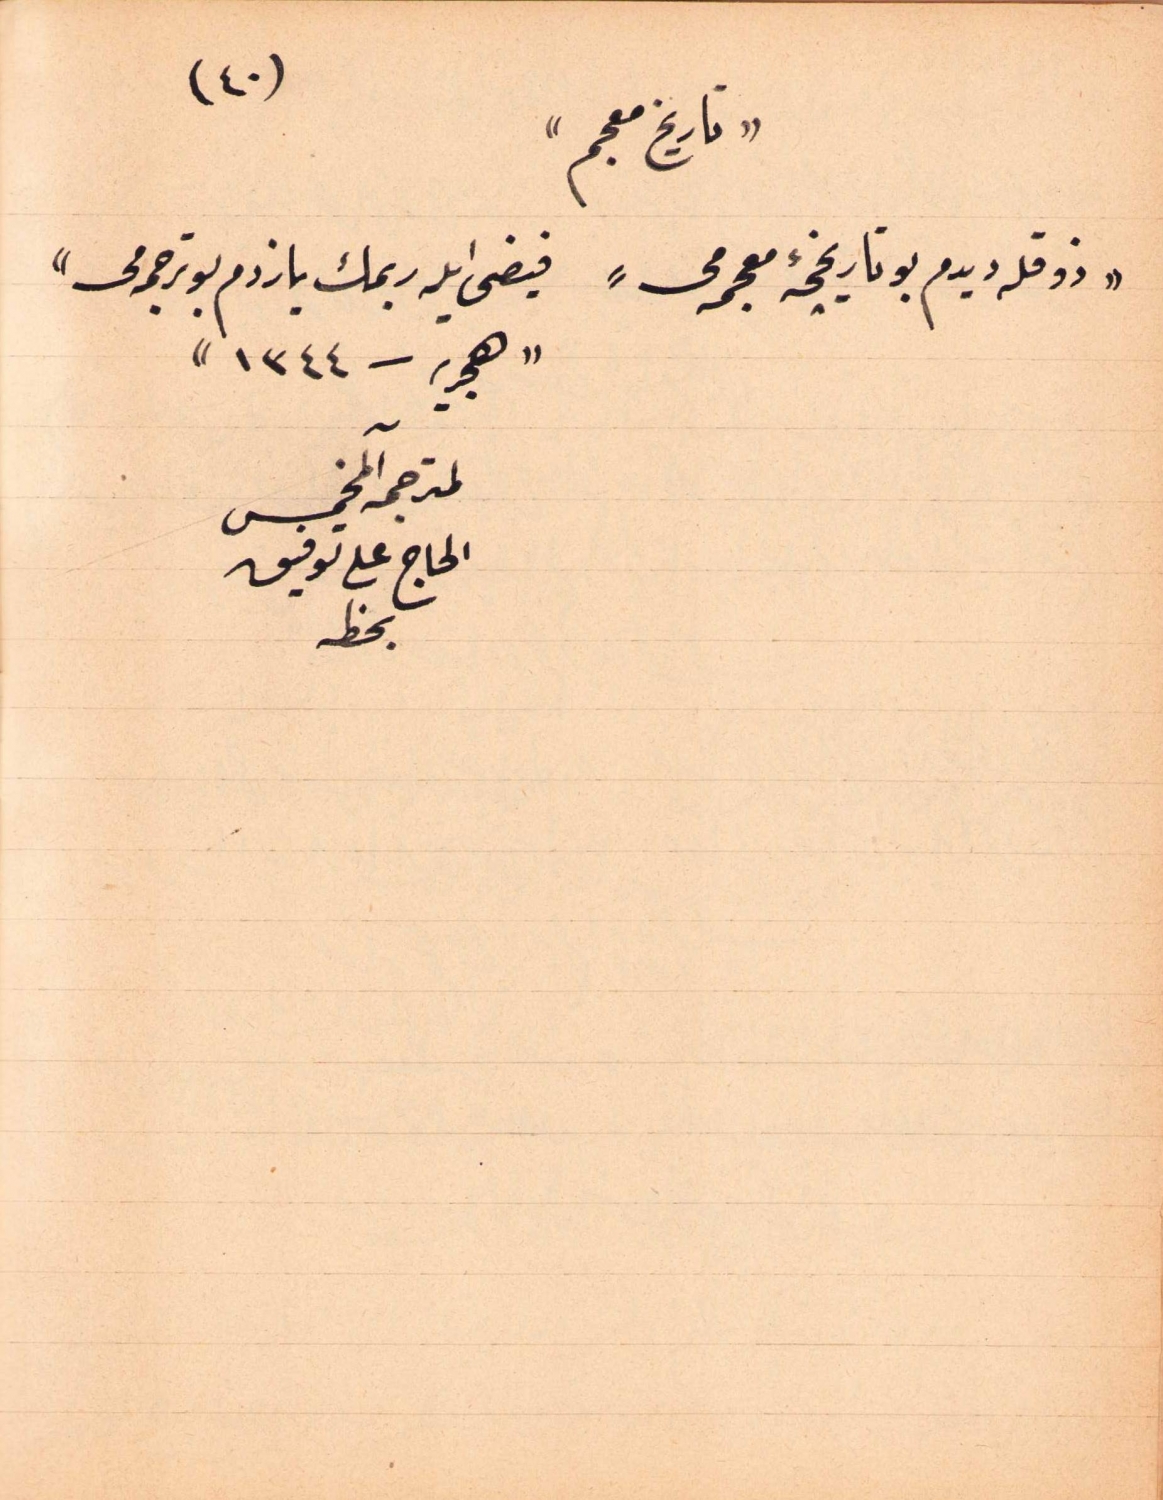 (٤٠)
« تاريخ معجم »
« ذوقله ديدم بو تاريخچهٔ معجمى » فيضى ايله ربمك يازدم بو ترجمه مى »
« هجريه – ١٣٤٤ »
لمترجمه المخمس
الحاج على توفيق
بخطه